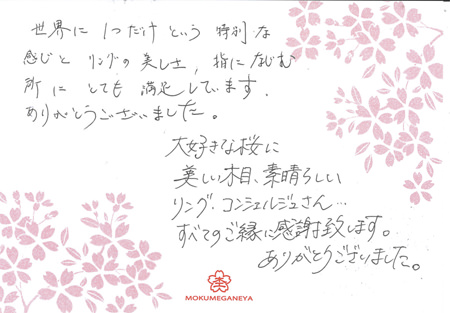 世界に 1つだけ という 特別な
感じと リングの 美しさ, 指になじむ
所に とても 満足しています.
ありがとうございました。
大好きな桜に
美しい木目、素晴らしい
リング.コンシェルジュさん…
すべてのご縁に感謝致します。
ありがとうございました。
MOKUMEGANEYA